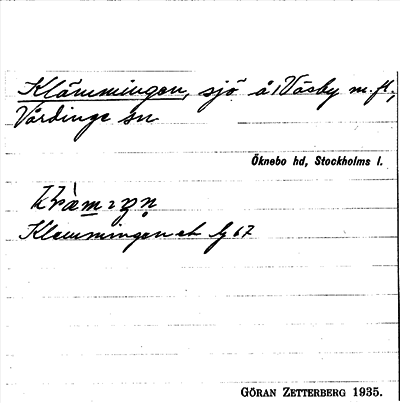 Klämmingen, sjö å Väsby m.fl.,
Vårdinge sn
Öknebo hd, Stockholms l.
Klemmingen
GÖRAN ZETTERBERG 1935.